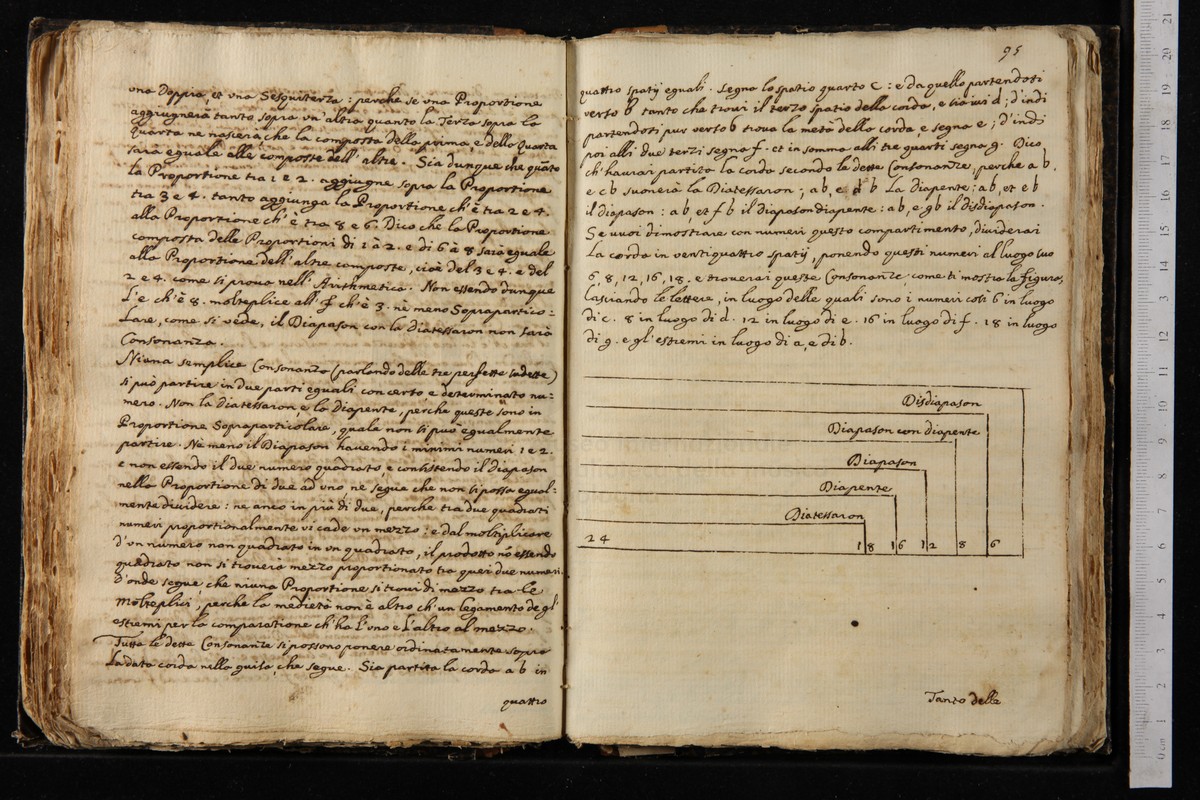 una Doppia, et una Sesquiterza: perche se una Proportione
aggiugnerà tanto sopra un'altra quanto la Terza sopra la
Quarta ne nascerà, che la composta della prima e della Quarta
sarà eguale alle composte dell'altre. Sia dunque che quāto
la Proportione tra 1 e 2. aggiugne sopra la Proportione
tra 3 e 4. tanto aggiunga la Proportione ch'è tra 2 e 4.
alla Proportione ch'è tra 8 e 6. Dico che la Proportione
composta delle Proportioni di 1 à 2. e di 6 à 8 sarà eguale
alla Proportione dell'altre composte, cioè del 3 e 4. e del
2 e 4. come si prova nell'Arithmetica. Non essendo dunque
L'e ch'è 8. molteplice all'f ch'è 3. nè meno Soprapartico=
lare, come si vede, il Diapason con la Diatessaron non sarà
Consonanza.
Niuna semplice Consonanza (parlando delle tre perfette sodette)
si può partire in due parti eguali con certo, e determinato nu=
mero. Non la Diatessaron, e la Diapente, perche queste sono in
Proportione Sopraparticolare, quale non si può egualmente
partire. Nè meno il Diapason havendo i minimi numeri 1 e 2.
e non essendo il due numero quadrato, e consistendo il diapason
nella Proportione di due ad uno, ne segue che non si possa egual=
mente dividere: ne anco in più di due, perche tra due quadrati
numeri proportionalmente vi cade un mezzo: e dal moltiplicare
d'un numero non quadrato in un quadrato, il prodotto nō essendo
quadrato non si trouera mezzo proportionato tra quei due numeri.
D'onde segue, che niuna Proportione si trovi di mezzo tra le
Molteplici, perche la medietà non è altro ch'un legamento de gl'
estremi per la comparatione ch'ha l'uno e l'altro al mezzo.
Tutte le dette Consonanze si possono ponere ordinatamente sopra
La data corda nella guisa, che segue. Sia partita la corda a b in
quattro
95
quattro spatij eguali. Segna lo spatio quarto C: e da quello partendoti
verso b tanto che trovi il terzo spatio della corda, e sia ivi d; d'indi
partendoti pur verso b trova la metà della corda e segna e; d'indi
poi alli due terzi segna f. et in somma alli tre quarti segna g. Dico
ch'haurai partita la corda secondo le dette Consonanze, perche a b.
e c b suonerà la Diatessaron; a b, e d b La Diapente: a b, et e b
il diapason: a b, et f b il diapasondiapente: a b, e g b il disdiapason.
Se vuoi dimostrare con numeri questo compartimento, dividerai
La corda in ventiquattro spatij, ponendo questi numeri al luogo suo
6, 8, 12, 16, 18. e troverai queste Consonanze, come ti mostra la figura,
Lasciando le lettere, in luogo delle quali sono i numeri cosi 6 in luogo
di c. 8 in luogo di d. 12 in luogo di e. 16 in luogo di f. 18 in luogo
di g. e gl'estremi in luogo di a, e di b.
Disdiapason
Diapason con diapente
Diapason
Diapente
Diatessaron
24 18 16 12 8 6
Tanto delle